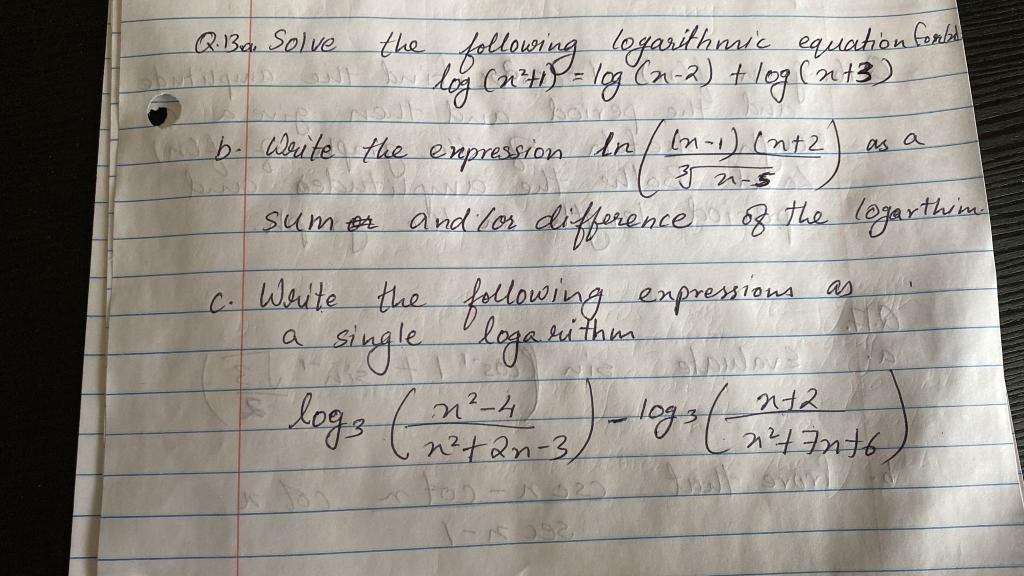 Q.13a. Solve the following logarithmic equation for
log (x²+1) = log (x-2) + log (x+3)
b. Write the expression ln ( (x-1) (x+2 / ∛ x-5 ) as a
sum and/or difference of the logarthim
c. Write the following expressions as
a single logarithm
log₃ ( x²-4 / x²+2x-3 ) - log₃ ( x+2 / x²+7x+6 )